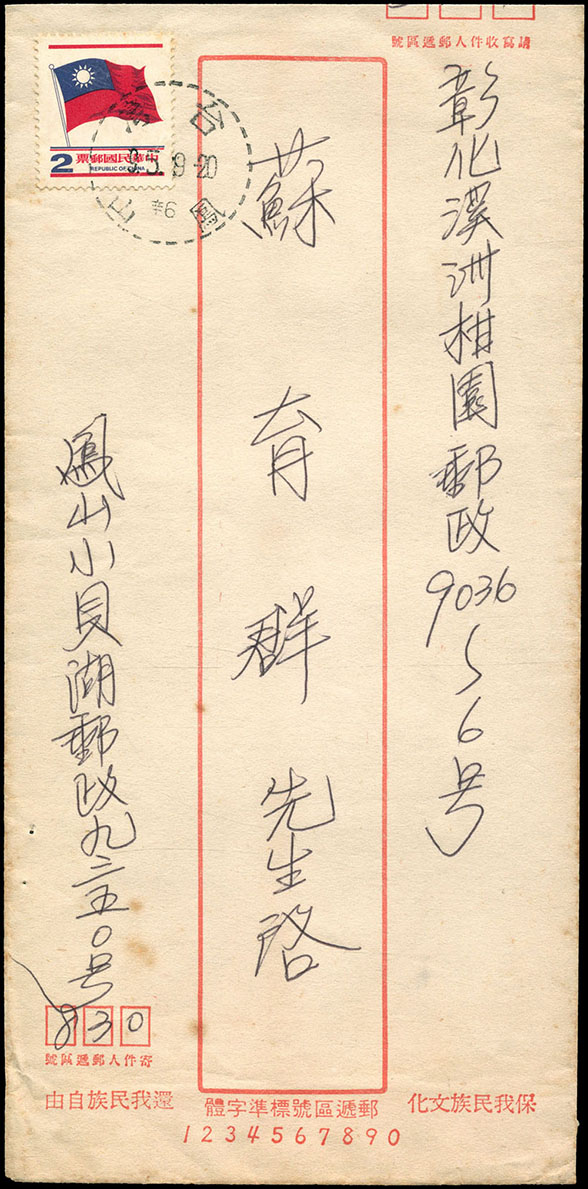 請寫收件人郵遞區號
彰化溪洲柑園郵政9036
〵6号
蘇育群先生啓
中華民國郵票
REPUBLIC OF CHINA
2
台
鳳
山
9.5.19-20
辛6
鳳山小貝湖郵政九二五0号
830
寄件人郵遞區號
保我民族文化
郵遞區號標準字體
還我民族自由
1234567890